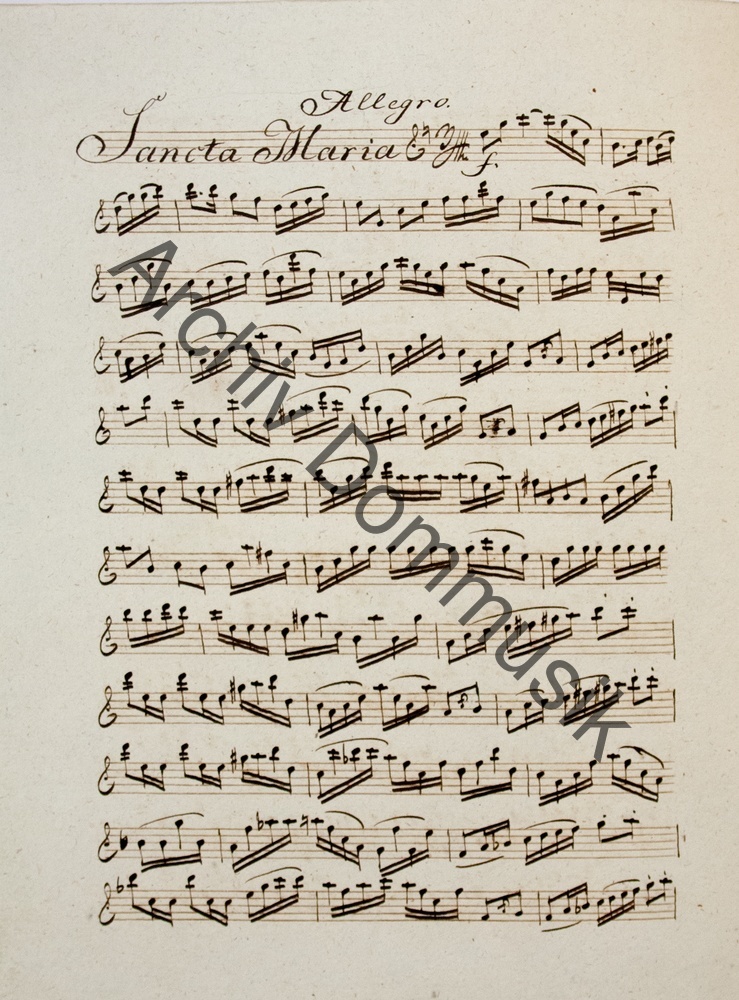 Allegro.
Sancta Maria
f.
Archiv Dommusik